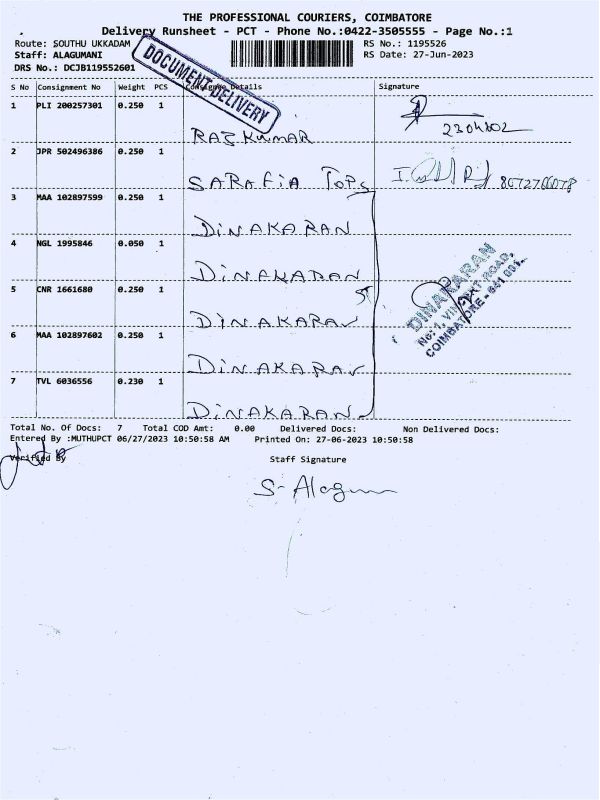 THE PROFESSIONAL COURIERS, COIMBATORE
Delivery Runsheet - PCT - Phone No.:0422-3505555 - Page No.:1
Route: SOUTHU UKKADAM
RS No.: 1195526
Staff: ALAGUMANI
RS Date: 27-Jun-2023
DRS No.: DCJB119552601
DOCUMENT DELIVERY
S No Consignment No Weight PCS Consignee Details Signature
1 PLI 200257301 0.250 1
RAJ KUMAR
2 JPR 502496386 0.250 1
SARAFIA TOPS
3 MAA 102897599 0.250 1
DINAKARAN
4 NGL 1995846 0.050 1
DINAKARAN
5 CNR 1661680 0.250 1
DINAKARAN
6 MAA 102897602 0.250 1
DINAKARAN
7 TVL 6036556 0.230 1
DINAKARAN
DINAKARAN
No: 1, VINCENT ROAD,
COIMBATORE - 641 001.
Total No. Of Docs: 7 Total COD Amt: 0.00 Delivered Docs: Non Delivered Docs:
Entered By :MUTHUPCT 06/27/2023 10:50:58 AM Printed On: 27-06-2023 10:50:58
Verified By
Staff Signature